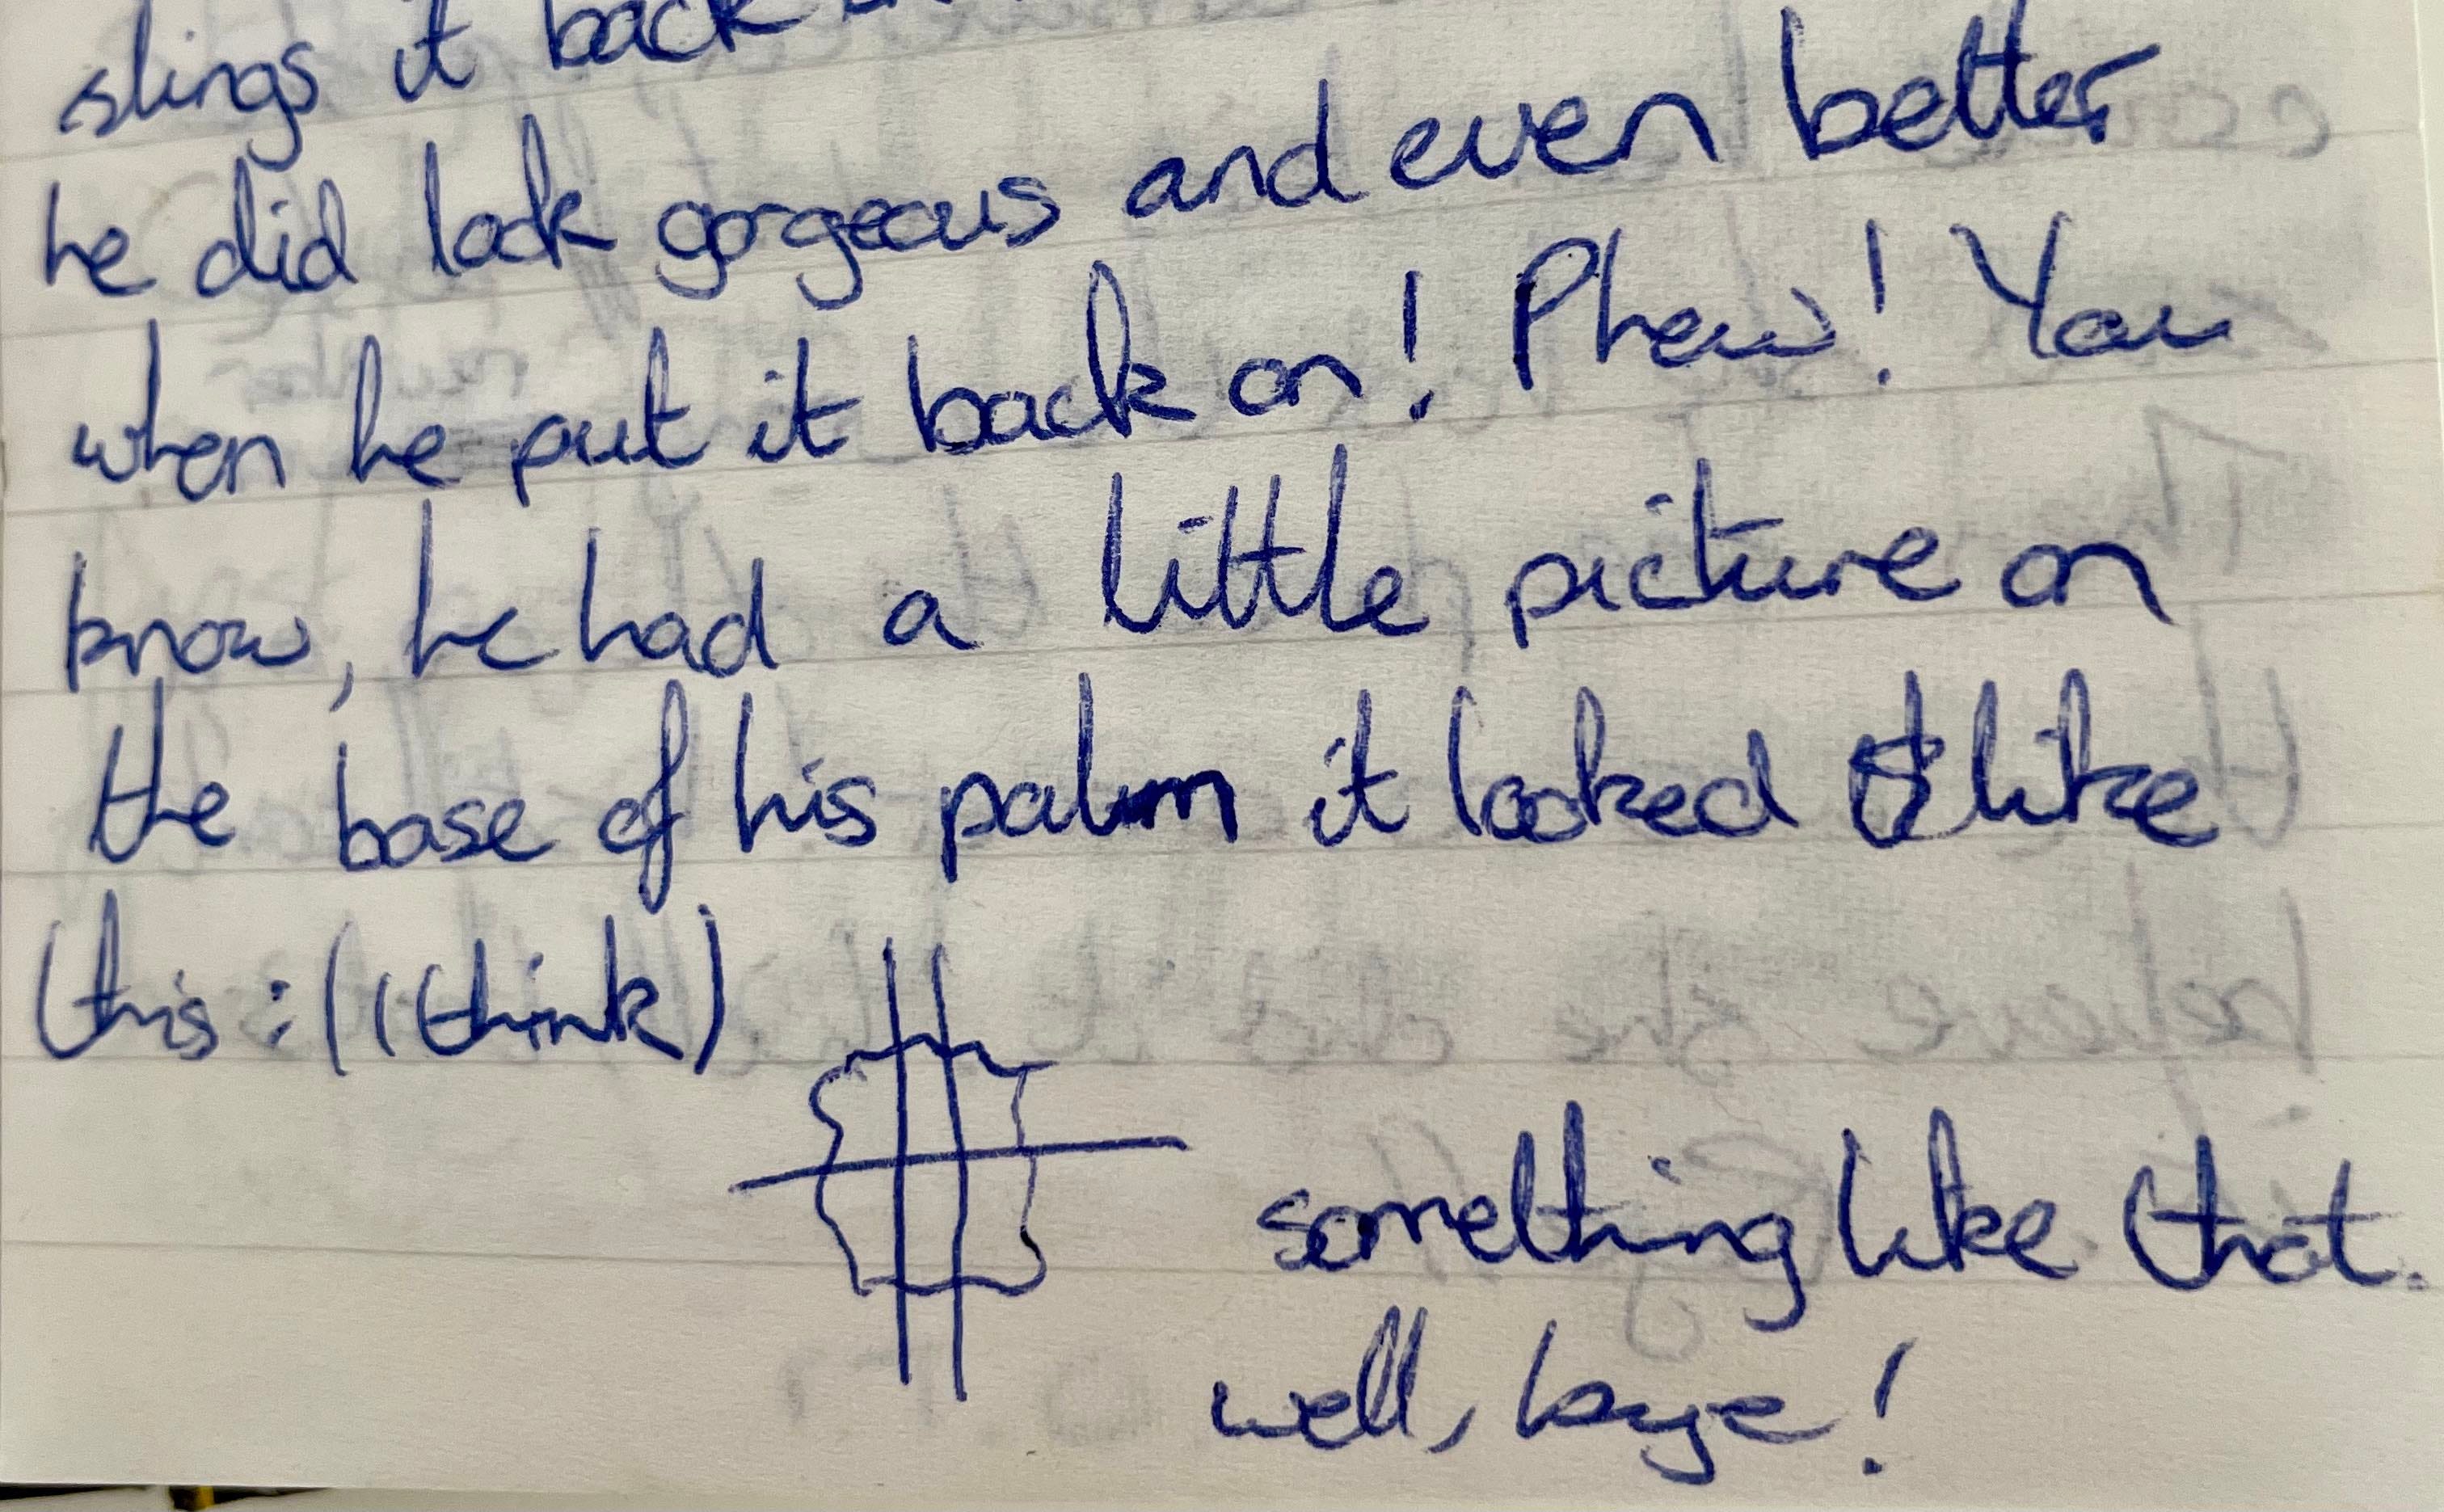 slings it back
he did look gorgeous and even better
when he put it back on! Phew! You
know, he had a little picture on
the base of his palm it looked like
this: (I think)
something like that.
well, bye!